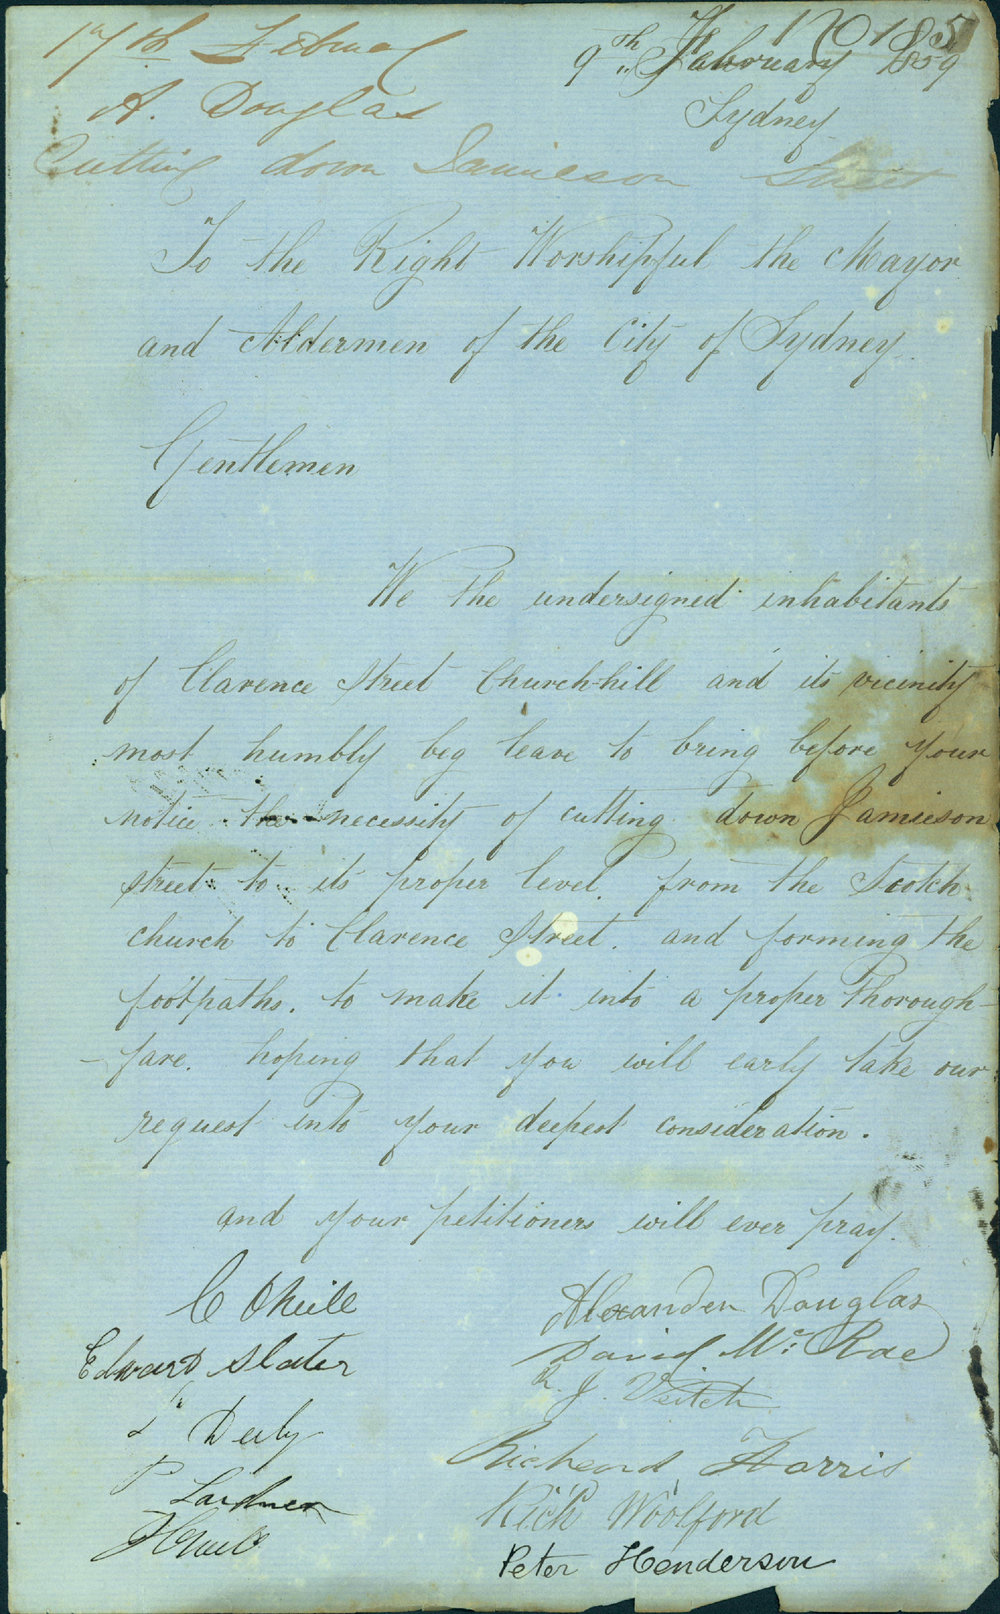 17th Februay
A. Douglas
Cutting down Jamieson Street
170 185
9th February 1859
Sydney
To the Right Worshipful the Mayor
and Aldermen of the City of Sydney.
Gentlemen
We the undersigned inhabitants
of Clarence Street Church-hill and its vicinity
most humbly beg leave to bring before your
notice the necessity of cutting down Jamieson
street to its proper level, from the Scotch
church to Clarence Street. and forming the
footpaths. to make it into a proper thorough-
fare. hoping that you will early take our
request into your deepest consideration.
and your petitioners will ever pray.
C ONeile
Edward Slater
Duly
P Lardner
Alexander Douglas
David Mc Rae
J. Veitch
Richard Harris
Rich Woolford
Peter Henderson